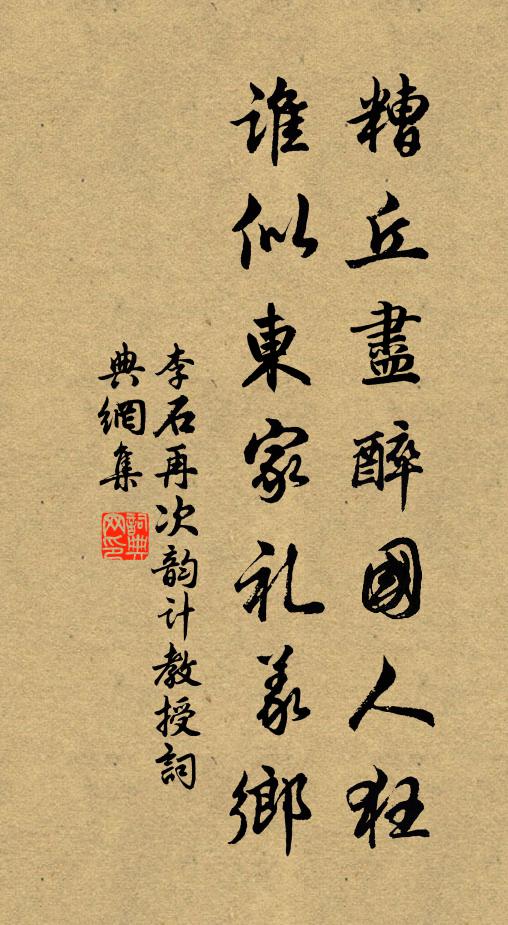 糟丘盡醉國人狂
誰似東家礼義鄉
李石再次韵計教授詞
典網集
詞典
网印